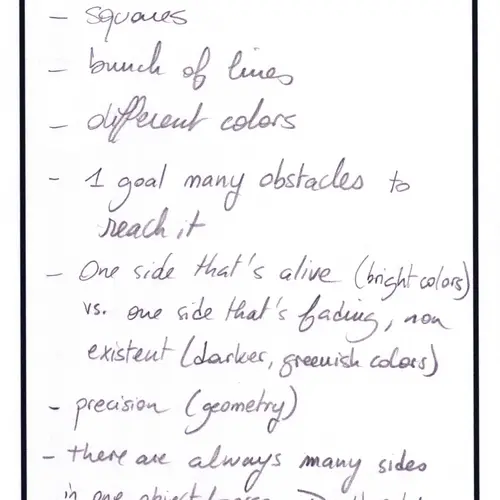 - squares
- bunch of lines
- different colors
- 1 goal many obstacles to
reach it
- One side that's alive (bright colors)
vs. one side that's fading, non
existent (darker, greenish colors)
- precision (geometry)
- there are always many sides
in one object